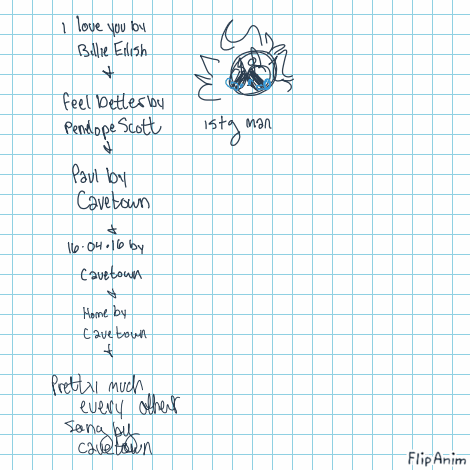 I love you by
Billie Eilish
Feel better by
Penelope Scott
Paul by
Cavetown
16.04.16 by
Cavetown
Home by
Cavetown
Pretty much
every other
song by
cavetown
istg man
FlipAnim